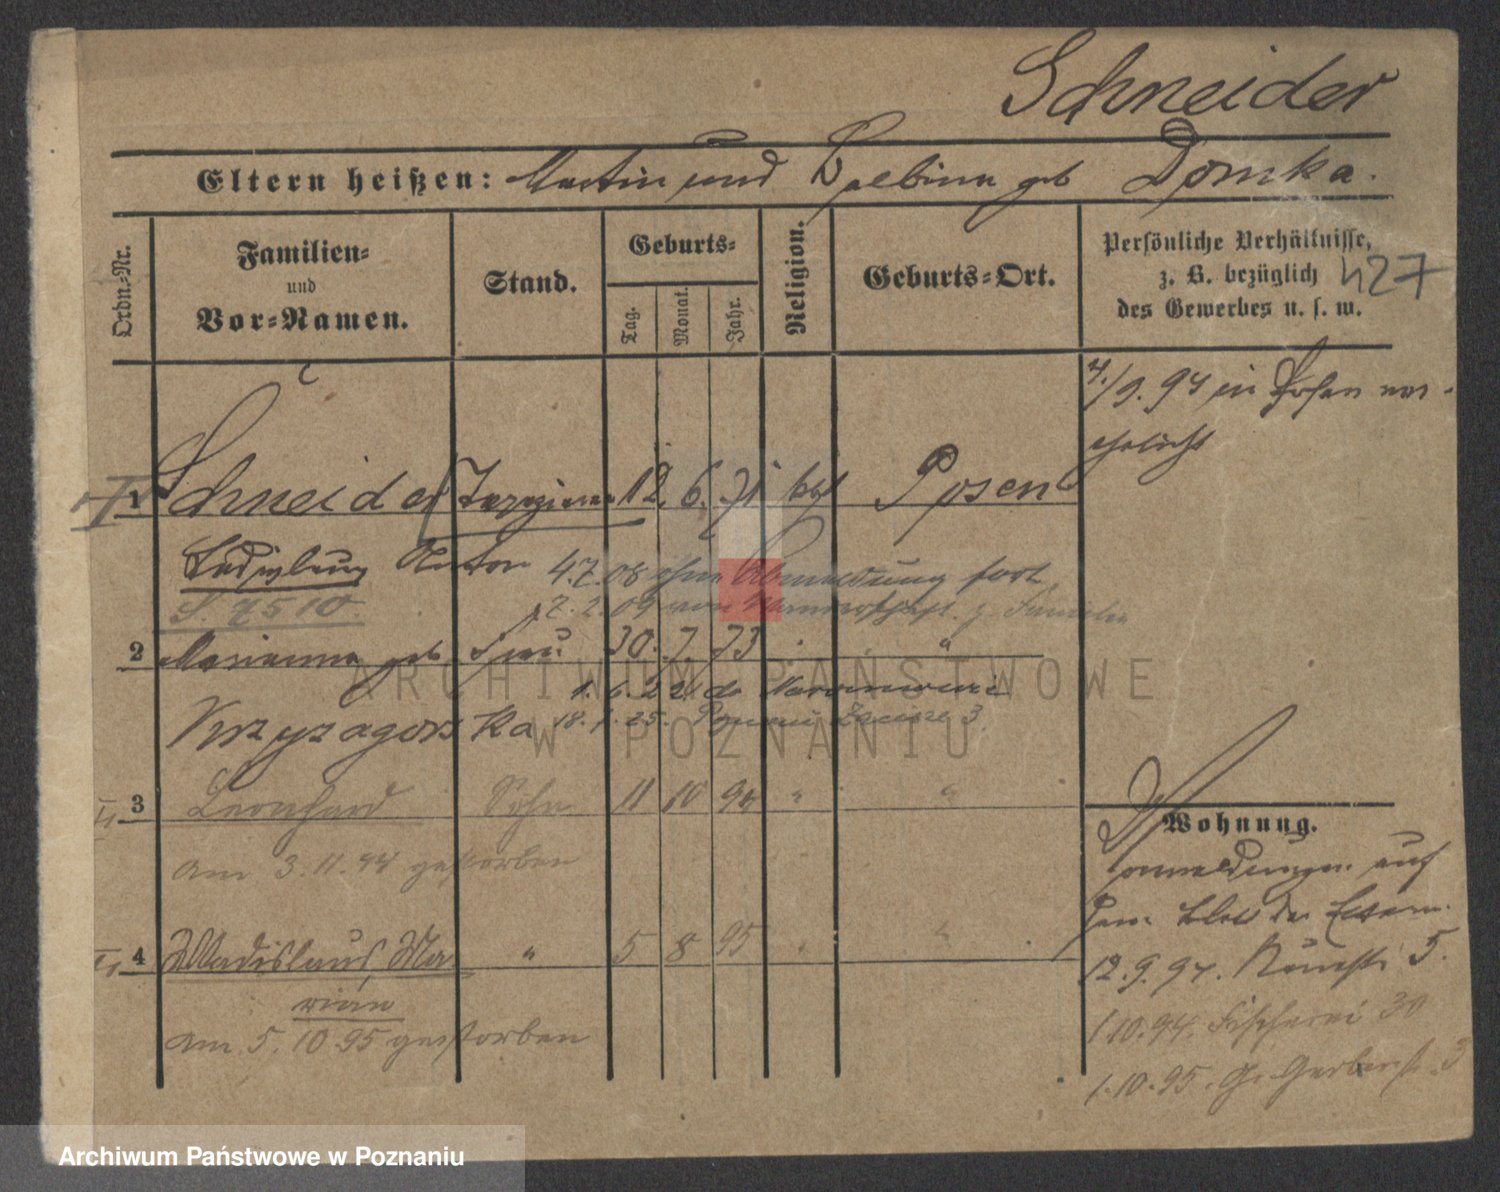 Schneider
Eltern heißen: Martin und Balbina geb Domka.
Ordn.-Nr.
Familien- und Vor-Namen.
Stand.
Geburts-
Tag.
Monat.
Jahr.
Religion.
Geburts-Ort.
Persönliche Verhältnisse,
z. B. bezüglich
des Gewerbes u. s. w.
427
4./9. 94 in Posen ver-
ehelicht
1 Schneider 12. 6. 71 kath Posen
Anton
4.7.08 ohne Abmeldung fort
S. 7510.
7.2.09 von
2 Marianna geb Frau 30. 7. 73 "
1.6.22
Krzyzagorska 18. 25. 3
3 Leonhard Sohn 11 10 94 " "
am 3.11.94 gestorben
4 Wladislaus, Ma- " 5 8 95 " "
rian
am 5.10.95 gestorben
Wohnung.
auf
dem Blatt der Eltern.
12.9.94. 5.
1.10.94. Fischerei 30
1.10.95. Gr. Gerberstr. 3
ARCHIWUM PAŃSTWOWE
W POZNANIU
Archiwum Państwowe w Poznaniu